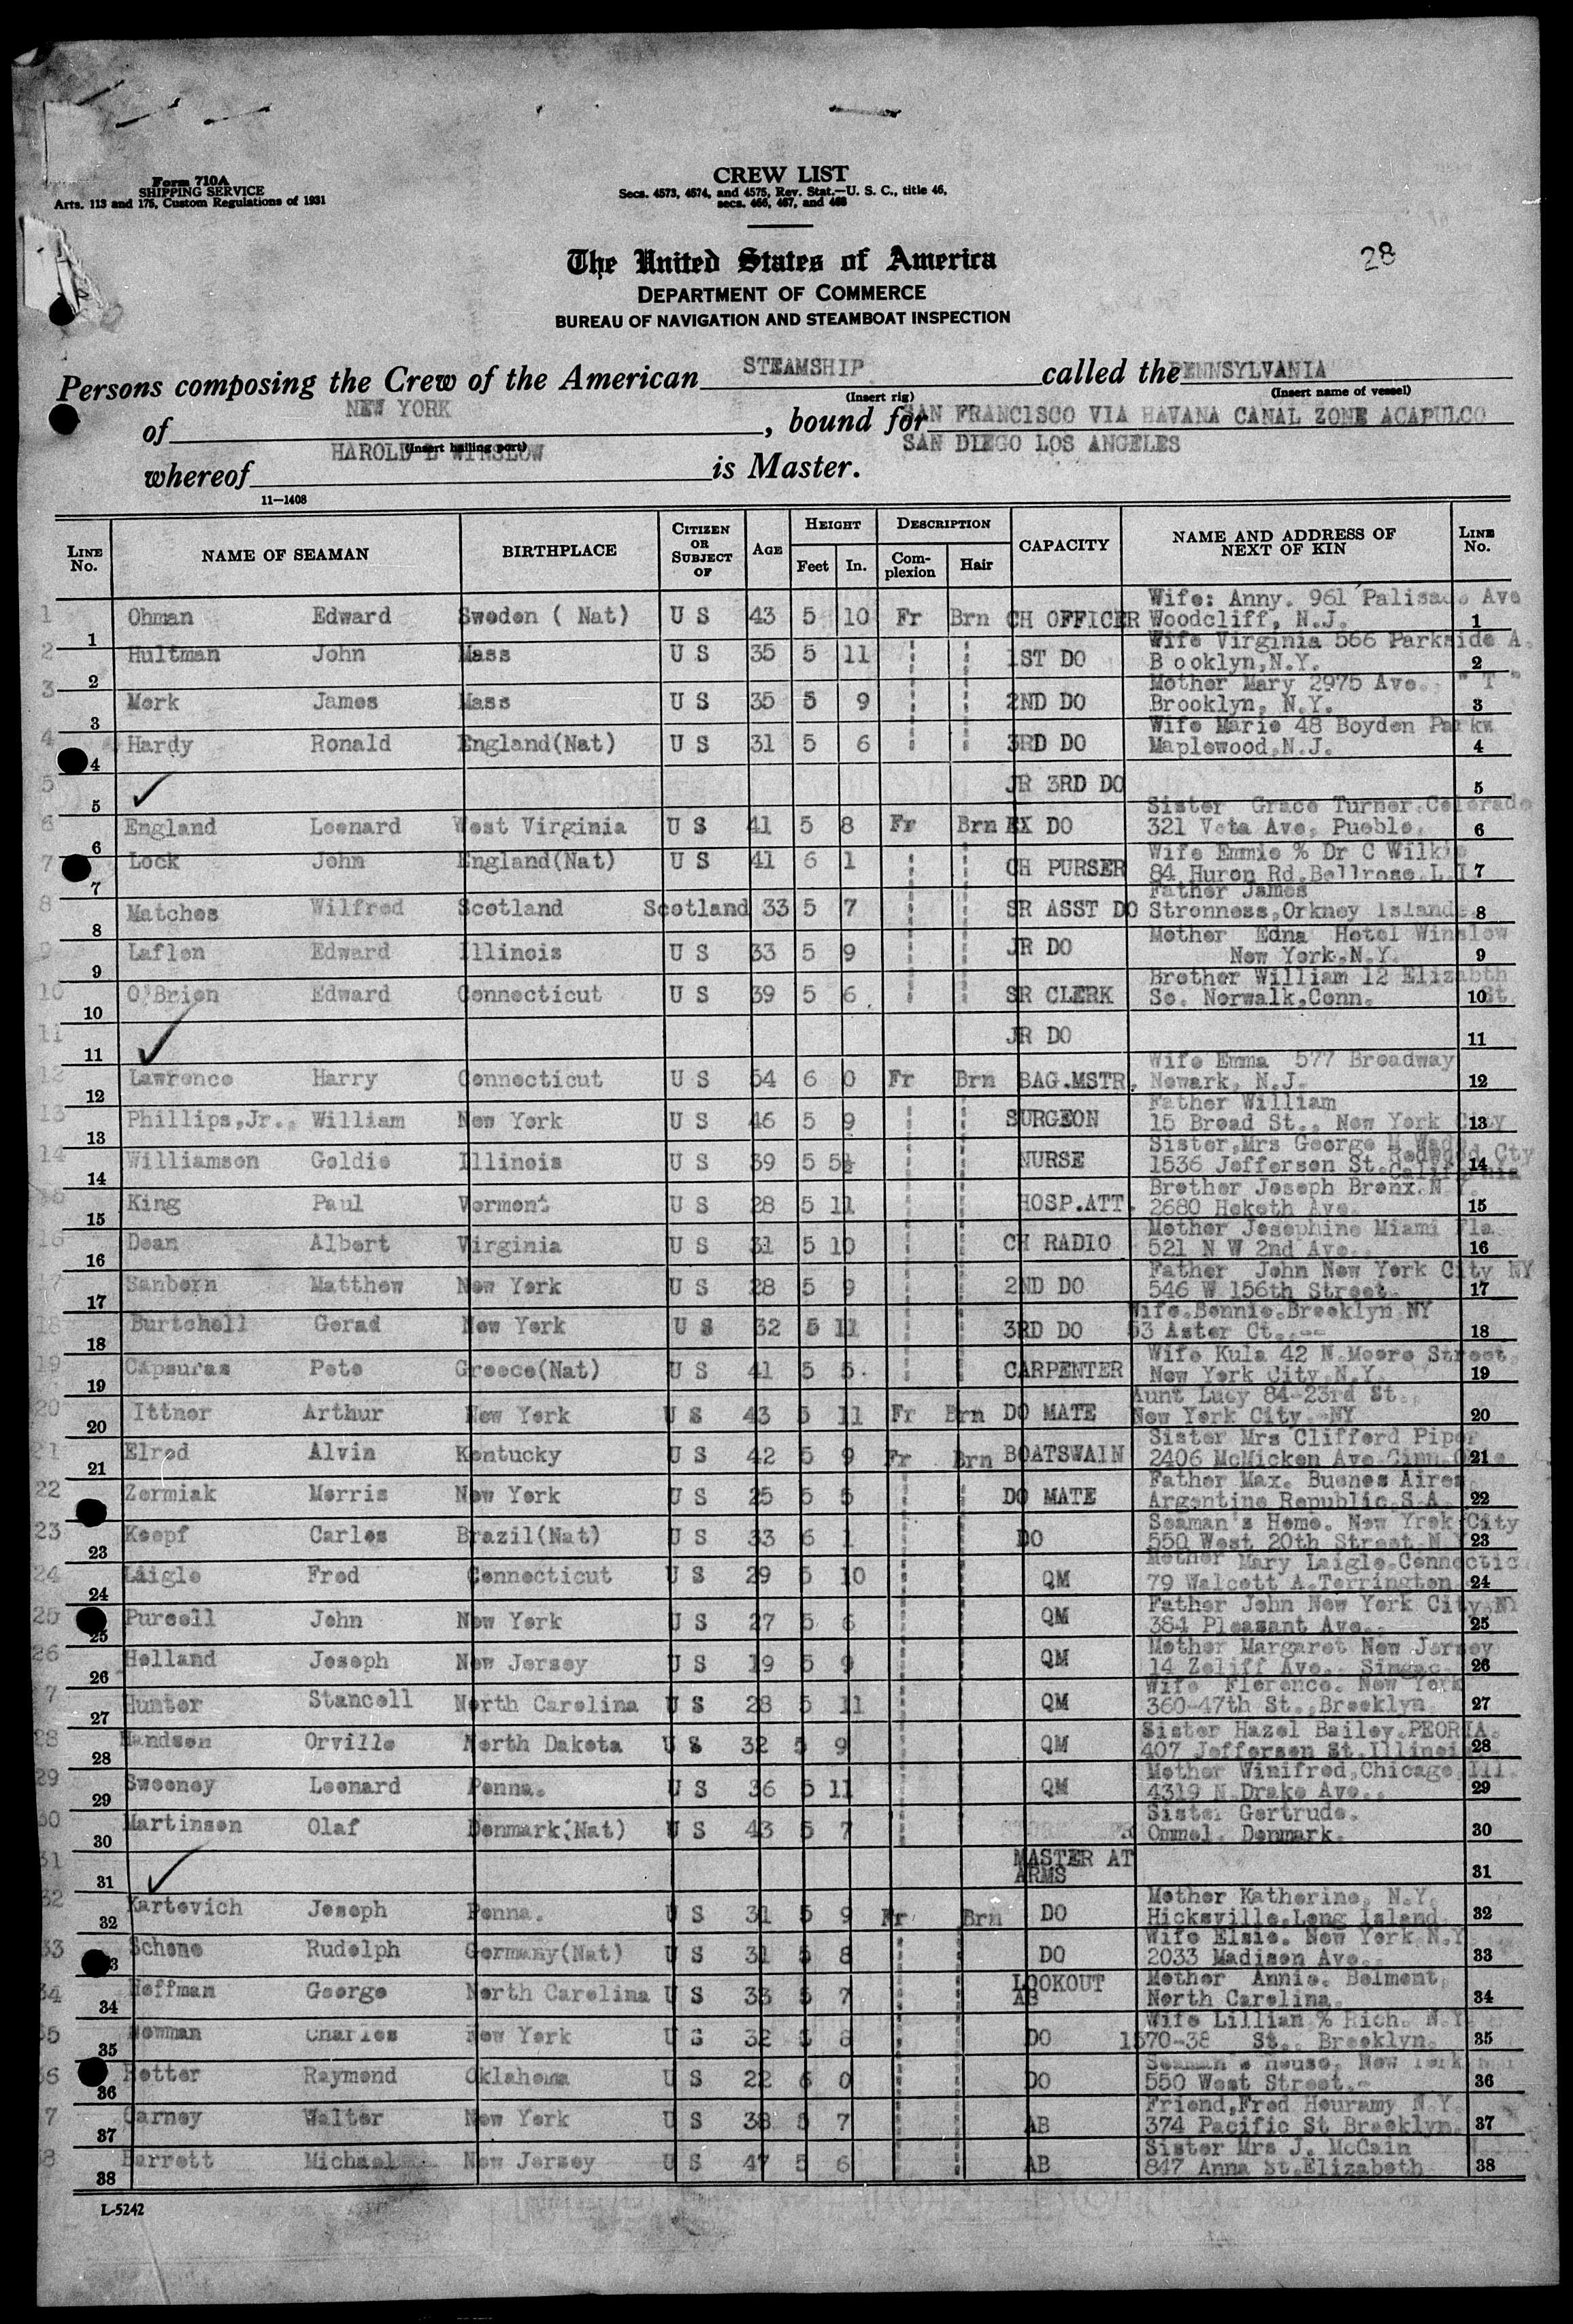 Form 710A
SHIPPING SERVICE
Arts. 113 and 175, Custom Regulations of 1931
CREW LIST
Secs. 4573, 4574, and 4575, Rev. Stat.—U. S. C., title 46,
secs. 466, 467, and 468
28
The United States of America
DEPARTMENT OF COMMERCE
BUREAU OF NAVIGATION AND STEAMBOAT INSPECTION
Persons composing the Crew of the American STEAMSHIP called the PENNSYLVANIA
(Insert rig) (Insert name of vessel)
of NEW YORK, bound for SAN FRANCISCO VIA HAVANA CANAL ZONE ACAPULCO
(Insert hailing port) SAN DIEGO LOS ANGELES
whereof HAROLD L WINSLOW is Master.
11—1408
LINE No. NAME OF SEAMAN BIRTHPLACE CITIZEN OR SUBJECT OF AGE HEIGHT Feet In. DESCRIPTION Complexion Hair CAPACITY NAME AND ADDRESS OF NEXT OF KIN LINE No.
1 1 Ohman Edward Sweden ( Nat) U S 43 5 10 Fr Brn CH OFFICER Wife: Anny. 961 Palisade Ave Woodcliff, N.J. 1
2 2 Hultman John Mass U S 35 5 11 1ST DO Wife Virginia 566 Parkside A. B ooklyn,N.Y. 2
3 3 Merk James Mass U S 35 5 9 2ND DO Mother Mary 2975 Ave. " T " Brooklyn, N.Y. 3
4 4 Hardy Ronald England(Nat) U S 31 5 6 3RD DO Wife Marie 48 Boyden Parkw Maplewood,N.J. 4
5 5 ✓ JR 3RD DO 5
6 6 England Leonard West Virginia U S 41 5 8 Fr Brn EX DO Sister Grace Turner.Colorado 321 Veta Ave, Pueblo. 6
7 7 Lock John England(Nat) U S 41 6 1 CH PURSER Wife Emmie % Dr C Wilkie 84 Huron Rd.Bellrose.L.I. 7
8 8 Matches Wilfred Scotland Scotland 33 5 7 SR ASST DO Father James Stronness,Orkney Islands. 8
9 9 Laflen Edward Illinois U S 33 5 9 JR DO Mother Edna Hotel Winslow New York,N.Y. 9
10 10 O'Brien Edward Connecticut U S 39 5 6 SR CLERK Brother William 12 Elizabth St. So. Norwalk,Conn. 10
11 11 ✓ JR DO 11
12 12 Lawrence Harry Connecticut U S 54 6 0 Fr Brn BAG.MSTR. Wife Emma 577 Broadway Newark, N.J. 12
13 13 Phillips,Jr., William New York U S 46 5 9 SURGEON Father William 15 Broad St., New York City 13
14 14 Williamson Goldie Illinois U S 39 5 5½ NURSE Sister,Mrs George M Wade 1536 Jefferson St. Redwood Cty California 14
15 15 King Paul Vermont U S 28 5 11 HOSP.ATT. Brother Joseph Bronx.N Y. 2680 Heketh Ave. 15
16 16 Dean Albert Virginia U S 31 5 10 CH RADIO Mother Josephine Miami Fla 521 N W 2nd Ave. 16
17 17 Sanbern Matthew New York U S 28 5 9 2ND DO Father John New York City NY 546 W 156th Street. 17
18 18 Burtchell Gerad New York U S 32 5 11 3RD DO Wife.Bennie.Brooklyn NY 53 Aster Ct..-- 18
19 19 Capsuras Pete Greece(Nat) U S 41 5 5. CARPENTER Wife Kula 42 N.Moore Street. New York City,N.Y. 19
20 20 Ittner Arthur New York U S 43 5 11 Fr Brn DO MATE Aunt Lucy 84-23rd St., New York City.-NY 20
21 21 Elred Alvin Kentucky U S 42 5 9 Fr Brn BOATSWAIN Sister Mrs Clifford Piper 2406 McMicken Ave 21
22 Zermiak Morris New York U S 25 5 5 DO MATE Father Max. Buenos Aires. Argentine Republic.S.A. 22
23 23 Koepf Carlos Brazil(Nat) U S 33 6 1 DO Seaman's Home. New Yrok City 550 West 20th Street.N. 23
24 24 Laigle Fred Connecticut U S 29 5 10 QM Mother Mary Laigle.Connectic 79 Walcott A.Torrington 24
25 25 Purcell John New York U S 27 5 6 QM Father John New York City,NY 384 Pleasant Ave.. 25
26 26 Holland Joseph New Jersey U S 19 5 9 QM Mother Margaret New Jersey 14 Zeliff Ave. Singac 26
7 27 Hunter Stancell North Carolina U S 28 5 11 QM Wife Florence. New York 360-47th St.,Brooklyn. 27
28 28 Handson Orville North Dakota U S 32 5 9 QM Sister Hazel Bailey.PEORIA. 407 Jefferson St.Illinois 28
29 29 Sweeney Leonard Penna. U S 36 5 11 QM Mother Winifred,Chicago Ill. 4319 N.Drake Ave.. 29
30 30 Martinsen Olaf Denmark(Nat) U S 43 5 7 Sister Gertrude. Ommel. Denmark. 30
31 31 ✓ MASTER AT ARMS 31
32 32 Kartovich Joseph Penna. U S 31 5 9 Fr Brn DO Mother Katherine, N.Y. Hicksville,Long Island. 32
33 Schene Rudolph Germany(Nat) U S 31 5 8 DO Wife Elsie. New York N.Y. 2033 Madison Ave.. 33
34 34 Hoffman George North Carolina U S 33 5 7 LOOKOUT AB Mother Annie. Belmont, North Carolina. 34
35 35 Newman Charles New York U S 32 5 8 DO Wife Lillian % Rich. N.Y. 1570-38 St.. Brooklyn. 35
36 36 Retter Raymond Oklahoma U S 22 6 0 DO Seaman's House, New York 550 West Street.- 36
7 37 Carney Walter New York U S 38 5 7 AB Friend,Fred Houramy N.Y. 374 Pacific St Brooklyn. 37
8 38 Barrett Michael New Jersey U S 47 5 6 AB Sister Mrs J. McCain 847 Anna St.Elizabeth 38
L-5242